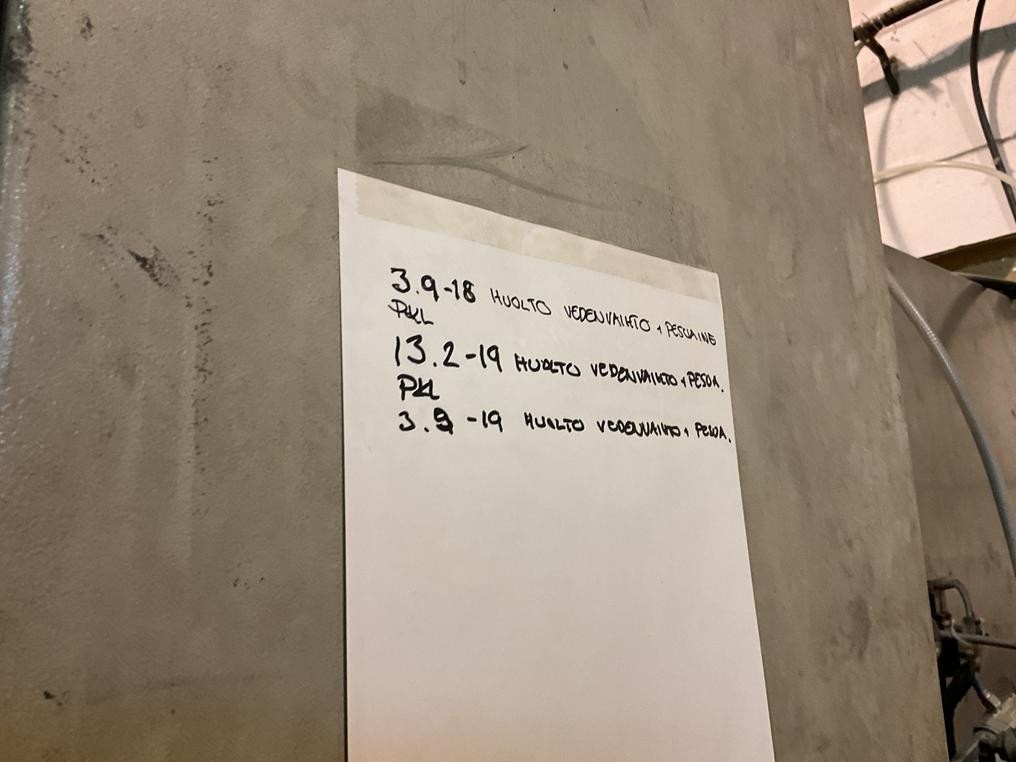 3.9-18 HUOLTO VEDENVAIHTO + PESUAINE
PKL
13.2-19 HUOLTO VEDENVAIHTO + PESUA.
PKL
3.9-19 HUOLTO VEDENVAIHTO + PESUA.